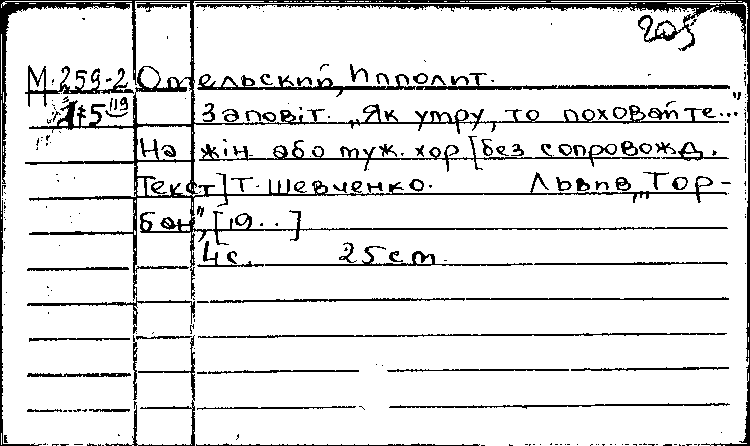 205
М.259-2 Отельский, Ипполит.
1+5 119 Заповіт. „Як умру, то поховайте..."
На жін або муж. хор [без сопровожд.
Текст] Т. Шевченко. Львив, „Тор-
бан", [19..]
4 с. 25 ст.